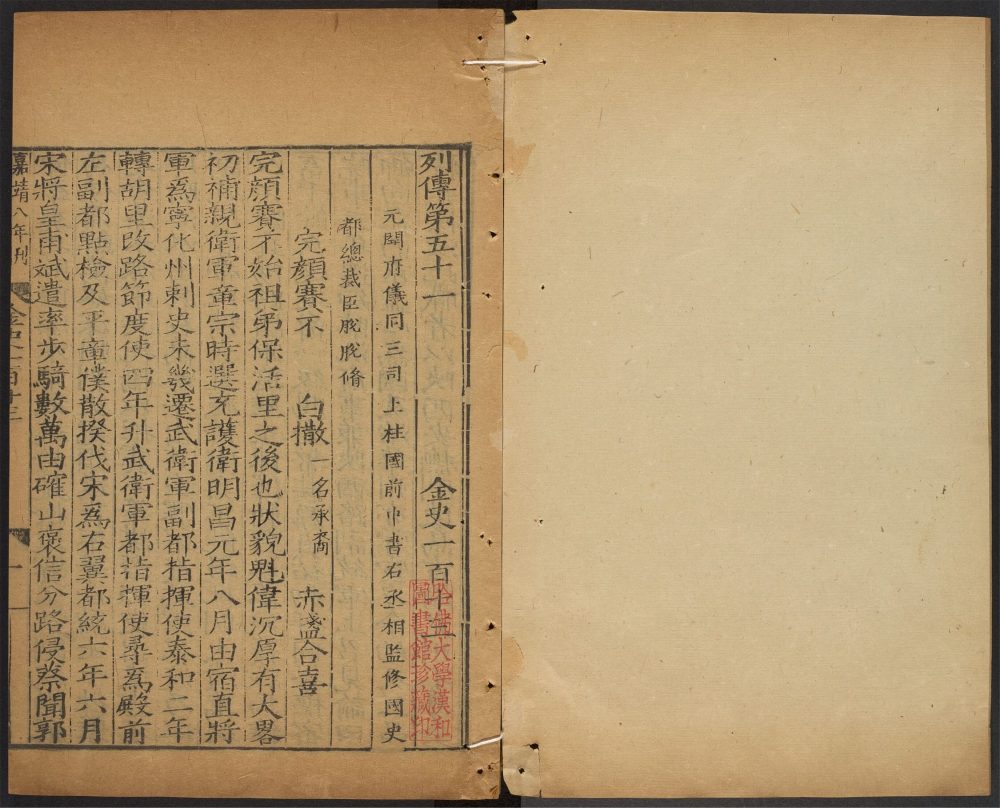 列傳第五十一 金史一百十三
元開府儀同三司上柱國前中書右丞相監修國史
都總裁臣脫脫脩
完顏賽不 白撒一名承裔 赤盞合喜
完顏賽不始祖弟保活里之後也狀貌魁偉沉厚有大畧
初補親衛軍章宗時選充護衛明昌元年八月由宿直將
軍為寧化州刺史未幾遷武衛軍副都指揮使泰和二年
轉胡里改路節度使四年升武衛軍都指揮使尋為殿前
左副都點檢及平章僕散揆伐宋為右翼都統六年六月
宋將皇甫斌遣率步騎數萬由確山褒信分路侵蔡聞郭
嘉靖八年刊 金史一百十三 一
哈佛大學漢和圖書館珍藏印